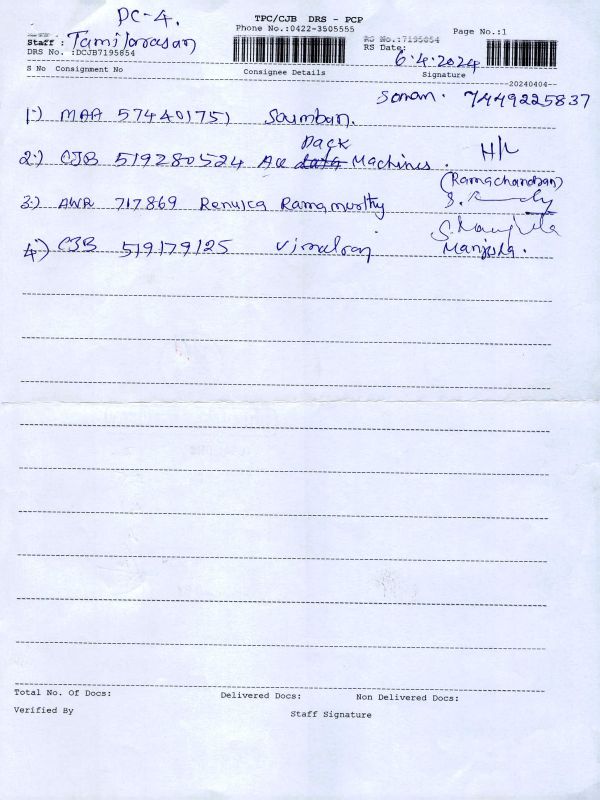 DC-4.
TPC/CJB DRS - PCP
Phone No.:0422-3505555
Page No.:1
Staff : Tamilarasan
RS No.:7195054
DRS No. :DCJB7195854
RS Date: 6.4.2024
S No Consignment No Consignee Details Signature
--20240404--
Sonam. 7449225837
1) MAA 574401751 Saimban.
2) CJB 519280524 Ace Pack Machines. H/L
(Ramachandran)
3) AWR 717869 Renuka Ramamurthy
4) CJB 519179125 Vimalraj Manjula.
Total No. Of Docs: Delivered Docs: Non Delivered Docs:
Verified By Staff Signature